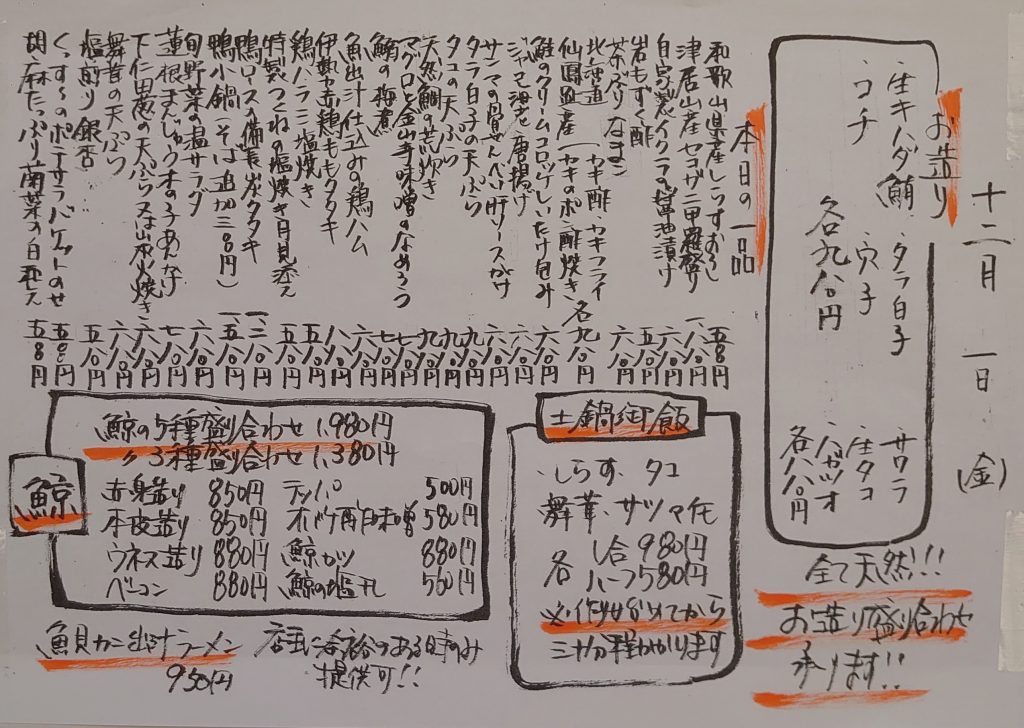 十二月 一日 (金)
お造り
生キハダ鮪 タラ白子 サワラ
コチ 穴子 生タコ
ハガツオ
各九八〇円
各八八〇円
全て天然!!
お造り盛り合わせ
承ります!!
本日の一品
和歌山県産しらすおろし 五八〇円
津居山産セコガニ甲羅盛り 一、八八〇円
自家製イクラの醤油漬け 六八〇円
岩もずく酢 五八〇円
茶ぶりなまこ 六八〇円
北海道 (カキ酢・カキフライ
仙鳳趾産 (カキのポン酢焼き 各九八〇円
鮭のクリームコロッケしいたけ包み 六八〇円
ジャンボ海老唐揚げ
サンマの骨せんべい肝ソースがけ
タラ白子の天ぷら
タコの天ぷら
天然鯛の荒炊き
マグロと金山寺味噌のなめろう
鰯の梅煮
魚出汁仕込みの鶏ハム
伊勢赤鶏ももタタキ
鶏ハラミ塩焼き
特製つくねの塩焼き月見添え
鴨ロース備長炭タタキ
鴨小鍋(そば追加三〇〇円)
旬野菜の温サラダ
蓮根まんじゅう木の子あんかけ
下仁田葱の天ぷら又は山水火焼き
舞茸の天ぷら
塩煎り銀杏
くんすもののポテサラバゲットのせ 五八〇円
胡麻たっぷり菊菜の白和え 五八〇円
鯨
鯨の5種盛り合わせ 1,980円
〃 3種盛り合わせ 1,380円
赤身造り 850円 テッパ 500円
本皮造り 850円 オバケ酢味噌 580円
ウネス造り 880円 鯨カツ 880円
ベーコン 880円 鯨の塩taps 560円
魚貝カニ出汁ラーメン
950円
店主に余裕のある時のみ
提供可!!
土鍋御飯
・しらす・タコ
舞茸・サツマイモ
各 1合 980円
ハーフ 580円
※作り始めてから
三十分程かかります